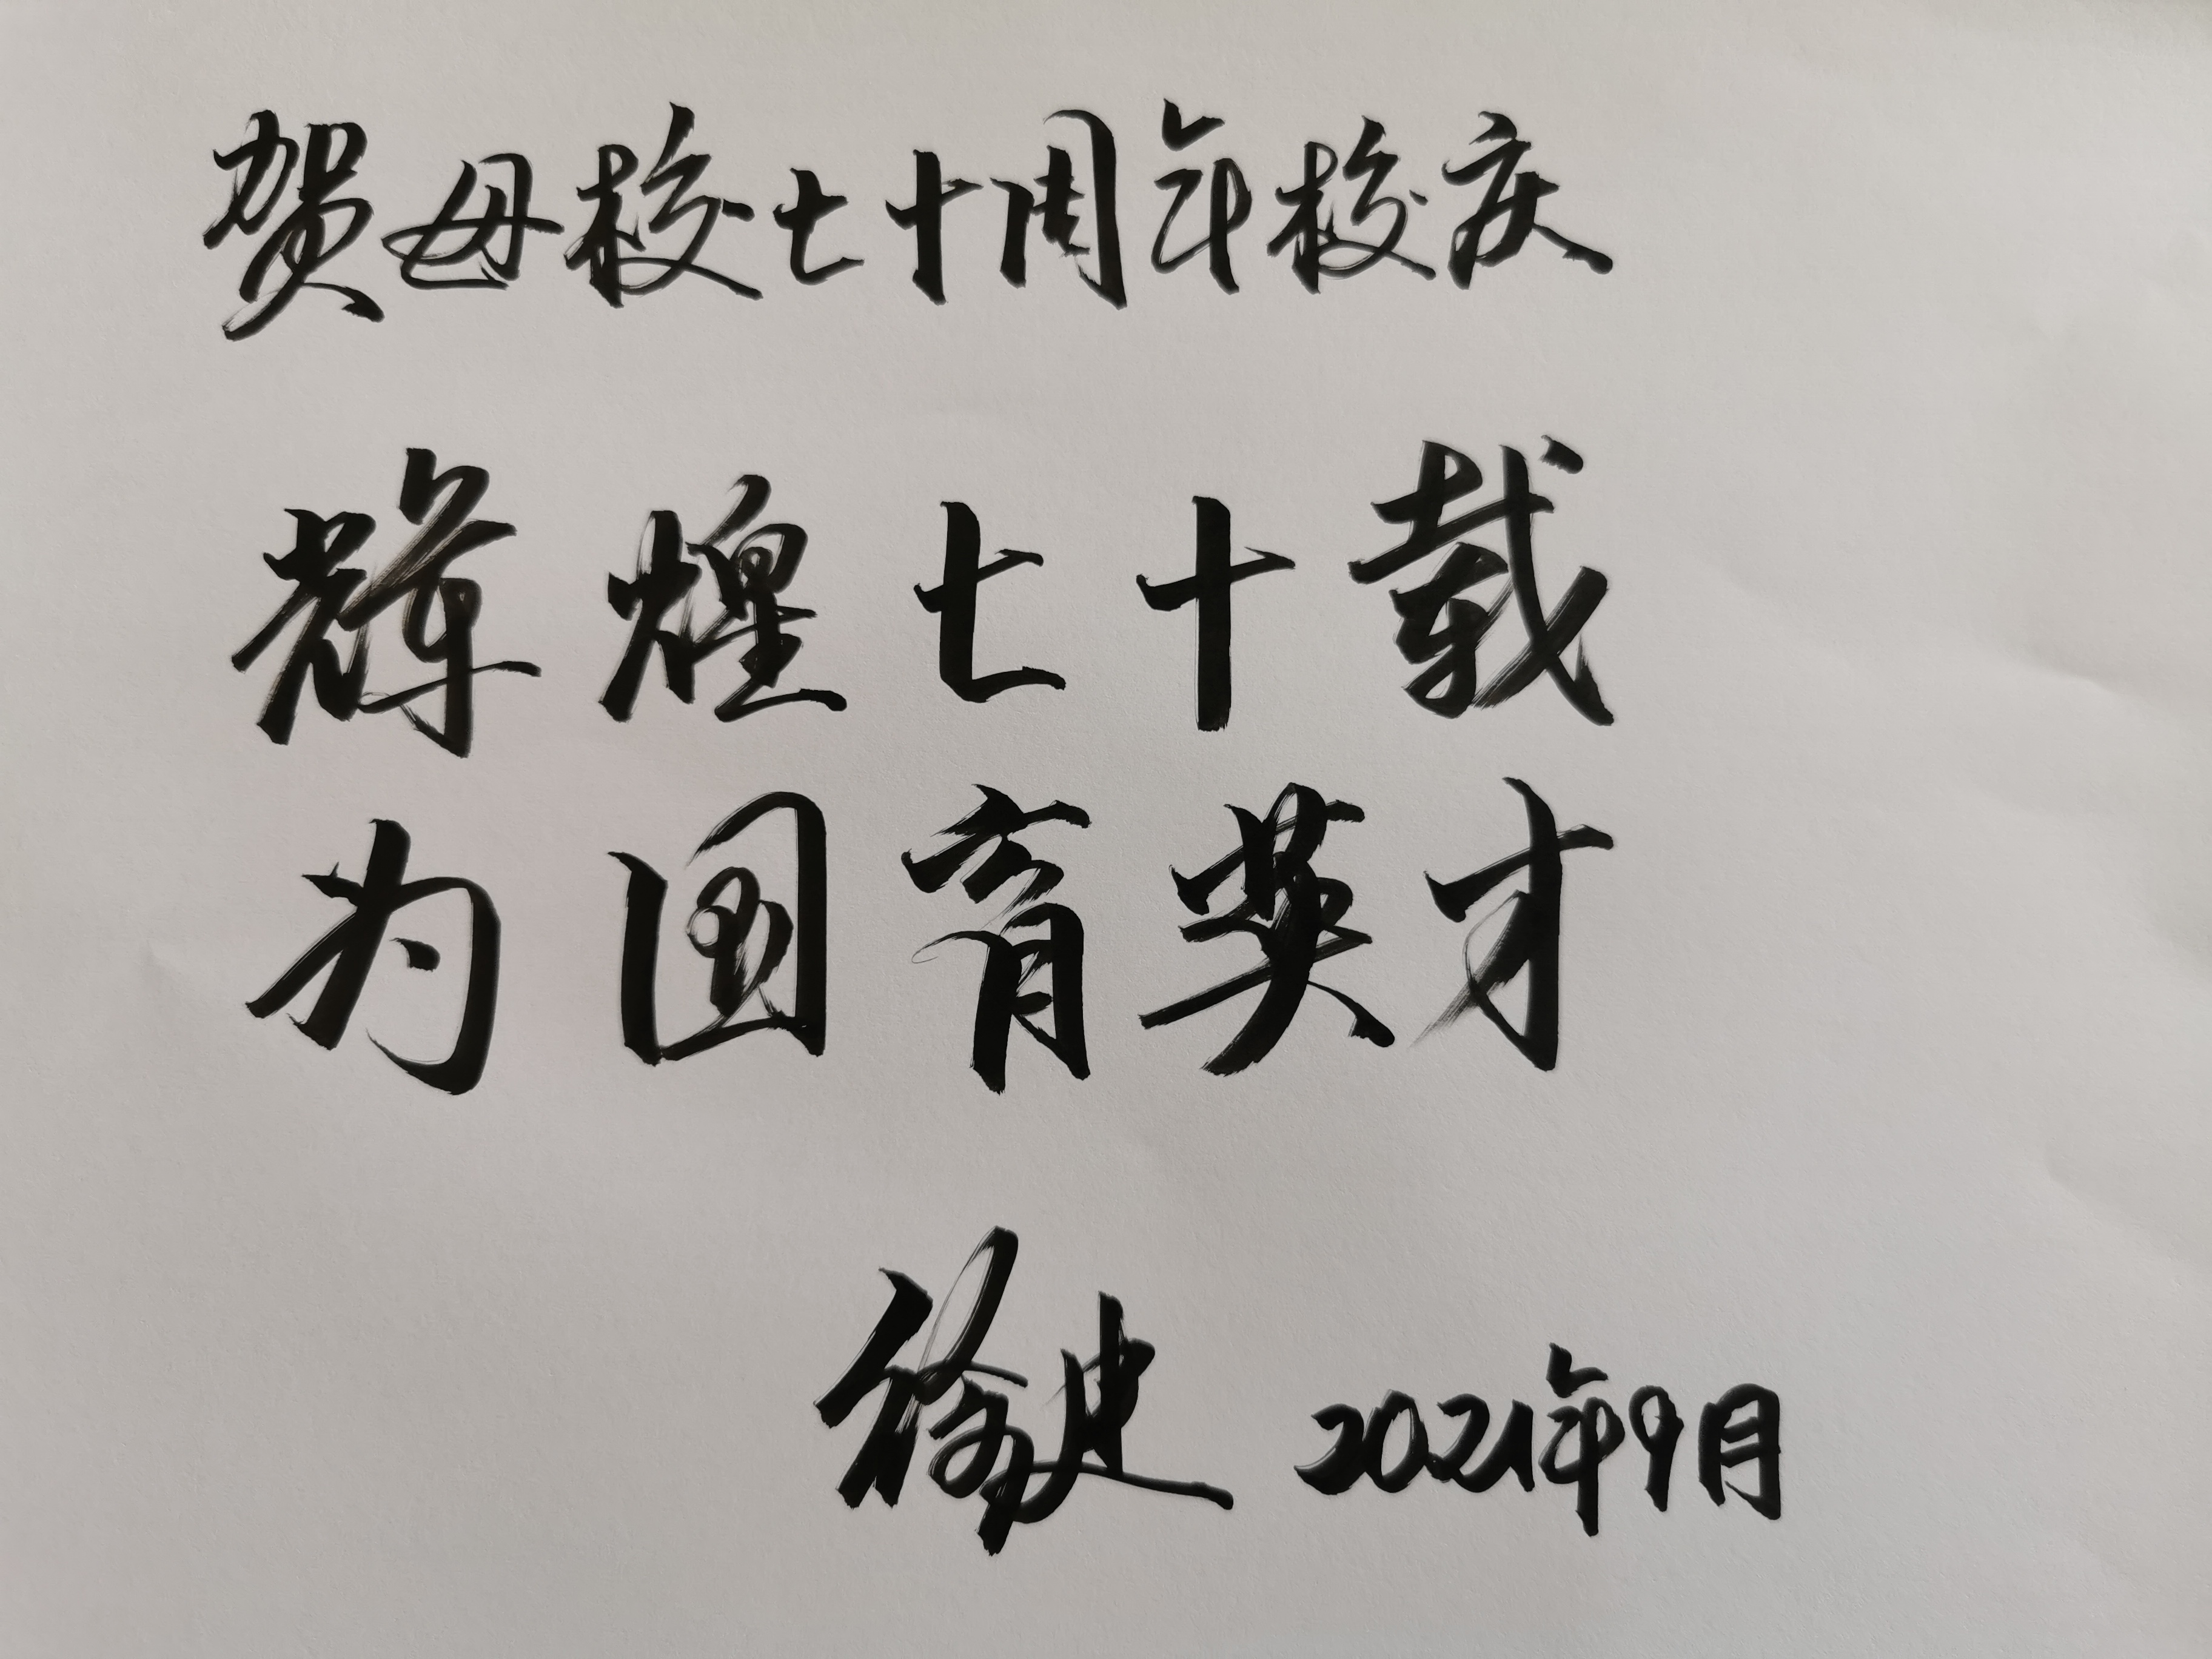 贺母校七十周年校庆
辉煌七十载
为国育英才
2021年9月